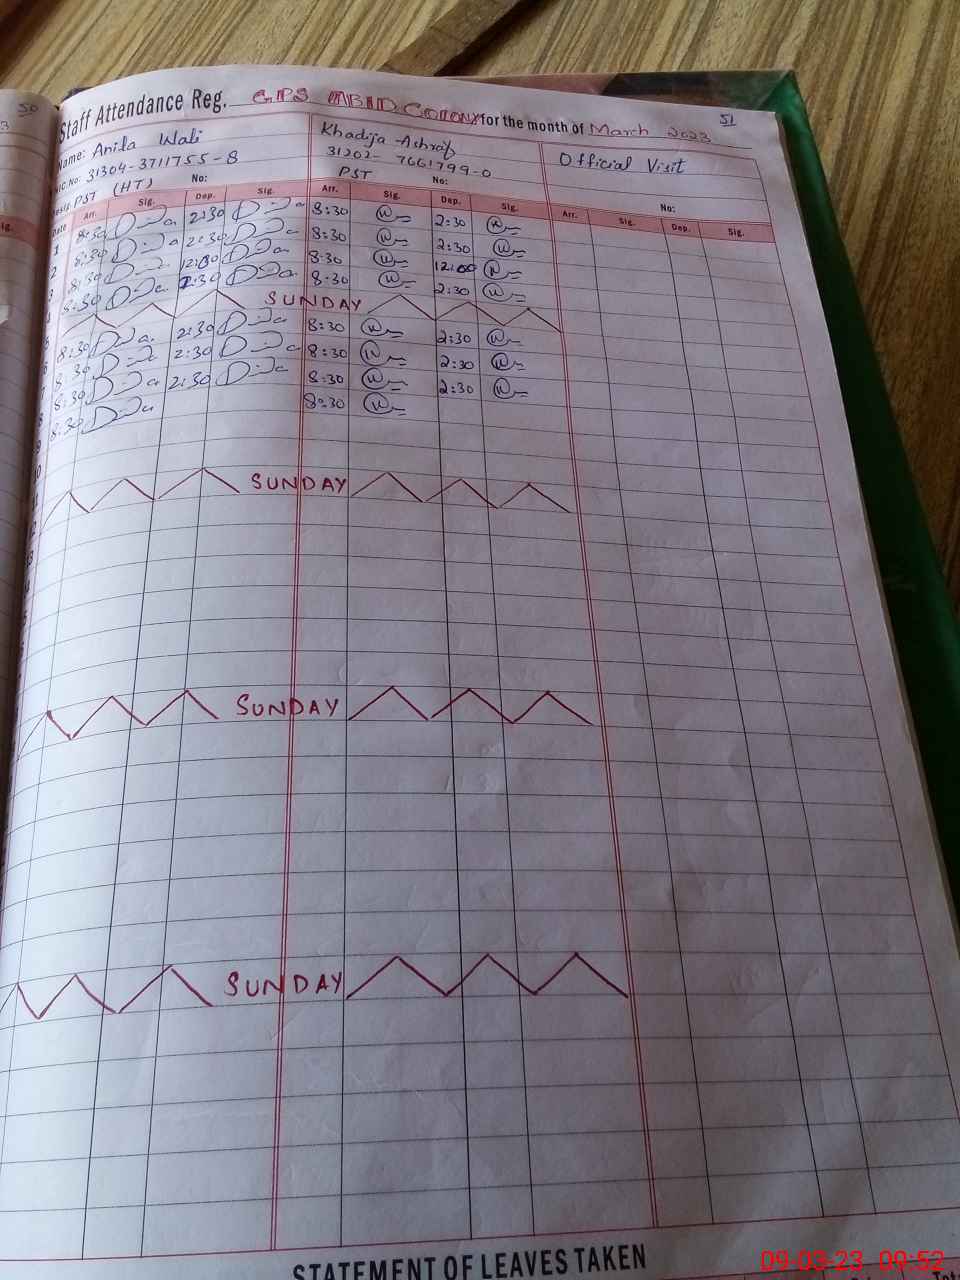 50
3
ig.
51
Staff Attendance Reg. G.P.S ABID COLONY for the month of March 2023
Name: Anila Wali Khadija Ashraf Official Visit
NIC.No: 31304-3711755-8 31202-7661799-0
Desig. PST (HT) No: PST No: No:
Date Arr. Sig. Dep. Sig. Arr. Sig. Dep. Sig. Arr. Sig. Dep. Sig.
1 8:30 2:30 8:30 2:30
2 8:30 2:30 8:30 2:30
3 8:30 12:00 8:30 12:00
4 8:30 2:30 8:30 2:30
5 SUNDAY
6 8:30 2:30 8:30 2:30
7 8:30 2:30 8:30 2:30
8 8:30 2:30 8:30 2:30
9 8:30 8:30
10
11
12 SUNDAY
13
SUNDAY
SUNDAY
STATEMENT OF LEAVES TAKEN
09-03-23 09:52
Tot